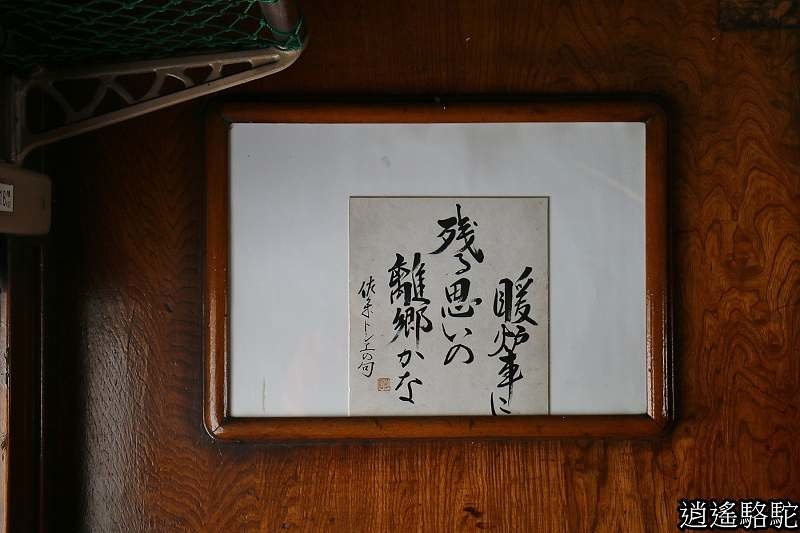 暖炉車に
残る思いの
離郷かな
佐々木トシエの句
逍遙駱駝